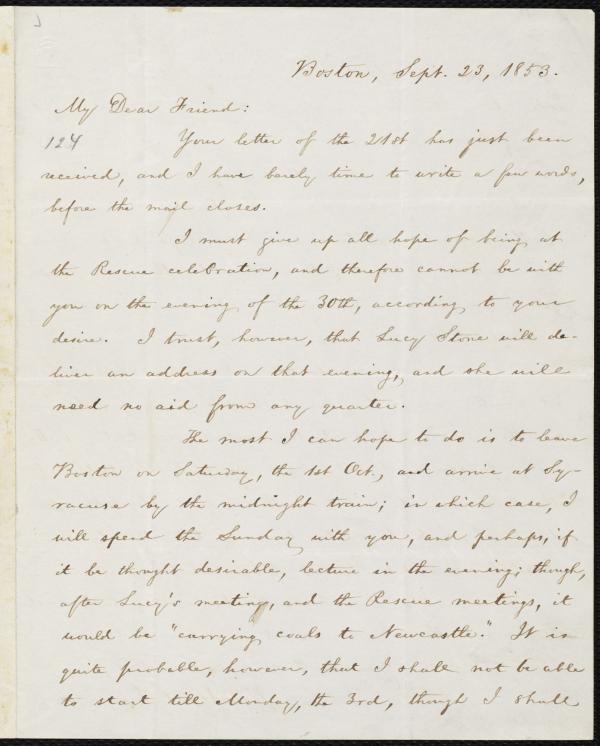 Boston, Sept. 23, 1853.
My Dear Friend:
124 Your letter of the 21st has just been
received, and I have barely time to write a few words,
before the mail closes.
I must give up all hope of being at
the Rescue celebration, and therefore cannot be with
you on the evening of the 30th, according to your
desire. I trust, however, that Lucy Stone will de-
liver an address on that evening, and she will
need no aid from any quarter.
The most I can hope to do is to leave
Boston on Saturday, the 1st Oct., and arrive at Sy-
racuse by the midnight train; in which case, I
will spend the Sunday with you, and perhaps, if
it be thought desirable, lecture in the evening; though,
after Lucy's meeting, and the Rescue meetings, it
would be "carrying coals to Newcastle." It is
quite probable, however, that I shall not be able
to start till Monday, the 3rd, though I shall